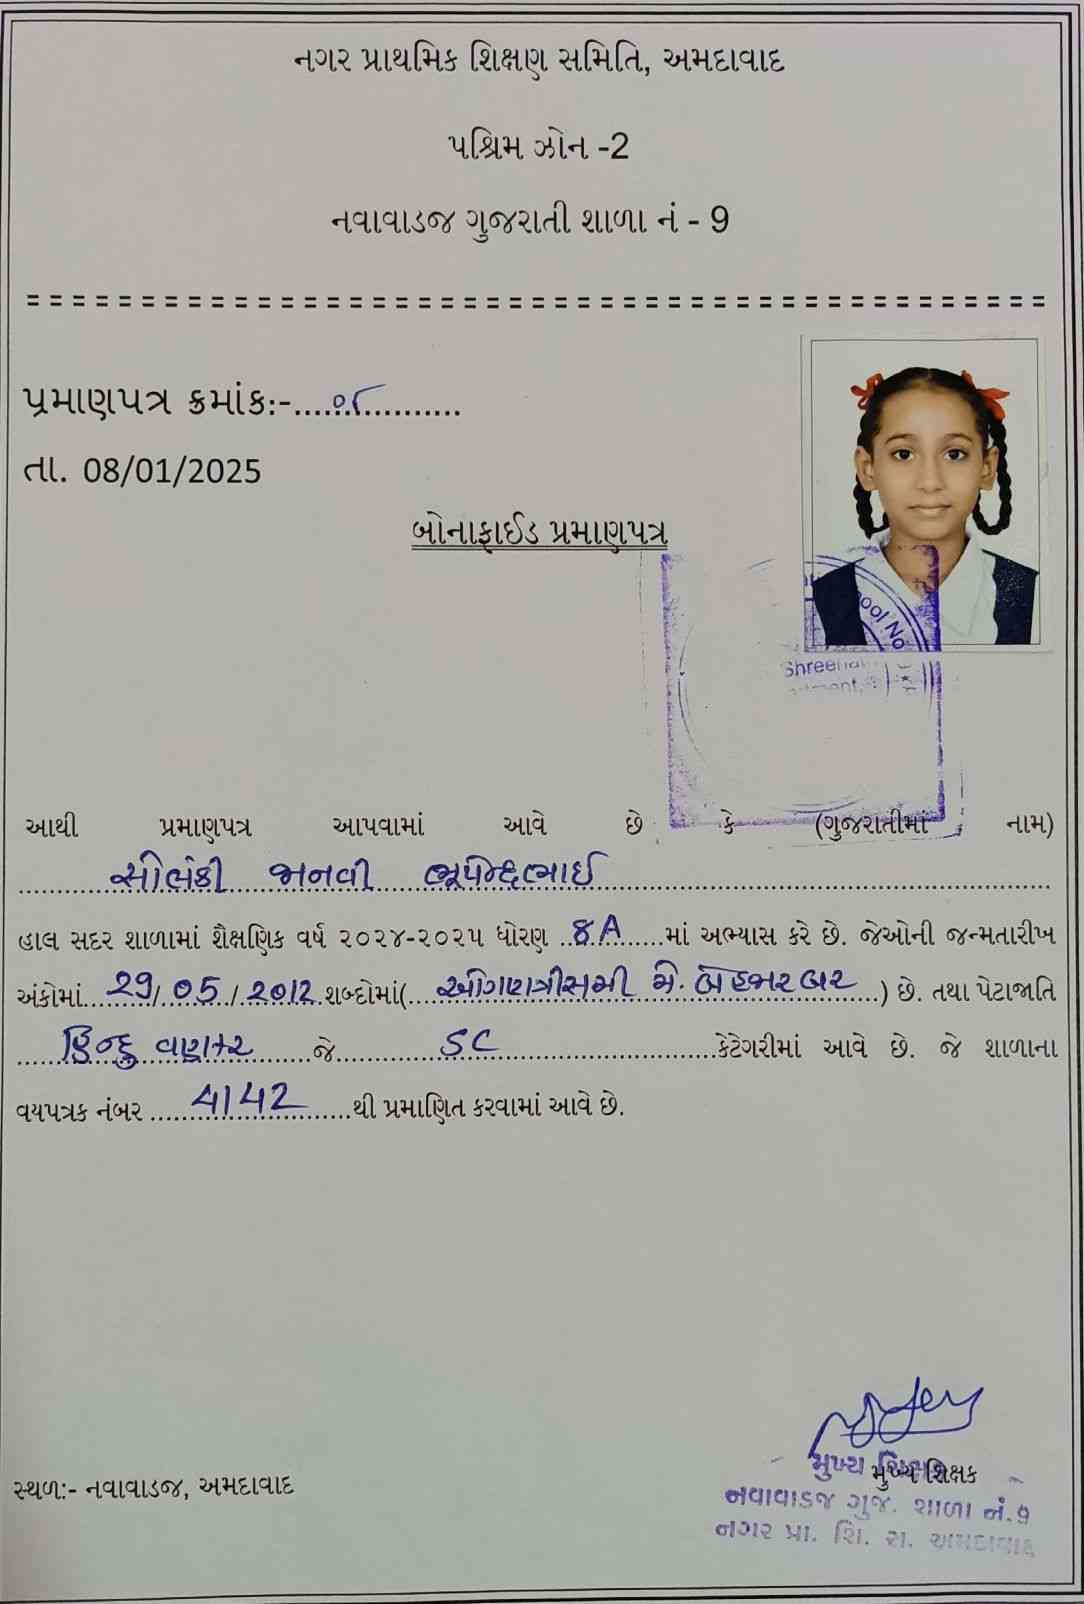 નગર પ્રાથમિક શિક્ષણ સમિતિ, અમદાવાદ
પશ્ચિમ ઝોન -2
નવાવાડજ ગુજરાતી શાળા નં - 9
પ્રમાણપત્ર ક્રમાંક:-....................
તા. 08/01/2025
બોનાફાઈડ પ્રમાણપત્ર
ool No
Shreena
આથી પ્રમાણપત્ર આપવામાં આવે છે કે (ગુજરાતીમાં નામ)
સોલંકી જાનવી ભૂપેન્દ્રભાઈ
હાલ સદર શાળામાં શૈક્ષણિક વર્ષ ૨૦૨૪-૨૦૨૫ ધોરણ ..8A......માં અભ્યાસ કરે છે. જેઓની જન્મતારીખ
અંકોમાં...29/.05./.2012.શબ્દોમાં(...ઓગણત્રીસમી મે. બેહજાર બાર...) છે. તથા પેટાજાતિ
હિન્દુ વણકર ......જે............SC........................કેટેગરીમાં આવે છે. જે શાળાના
વયપત્રક નંબર ......4142......થી પ્રમાણિત કરવામાં આવે છે.
મુખ્ય શિક્ષક
સ્થળ:- નવાવાડજ, અમદાવાદ
મુખ્ય શિક્ષક
નવાવાડજ ગુજ. શાળા નં.9
નગર પ્રા. શિ. સ. અમદાવાદ